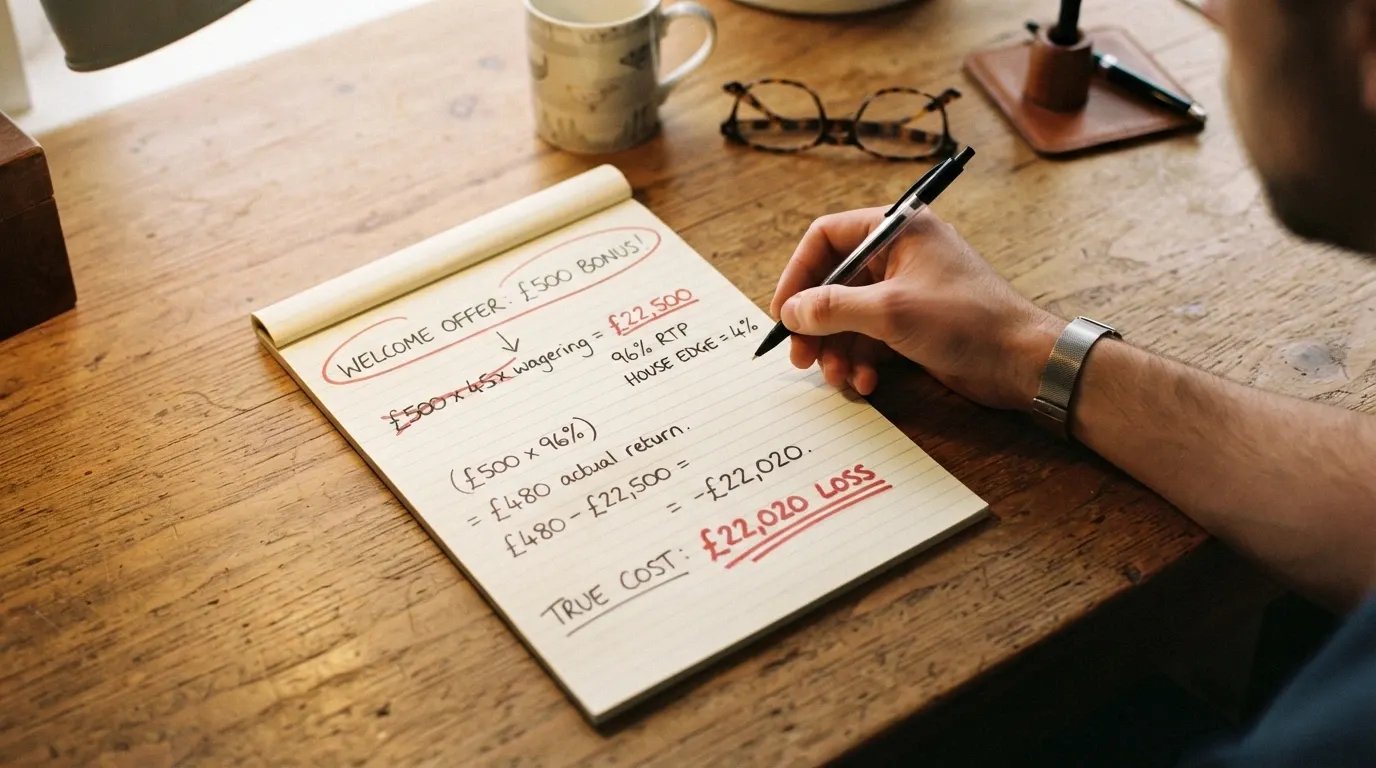 WELCOME OFFER: £500 BONUS!
£500 x 45x wagering = £22,500
96% RTP
HOUSE EDGE = 4%
(£500 x 96%)
= £480 actual return.
£480 - £22,500 =
= -£22,020.
TRUE COST: £22,020 LOSS